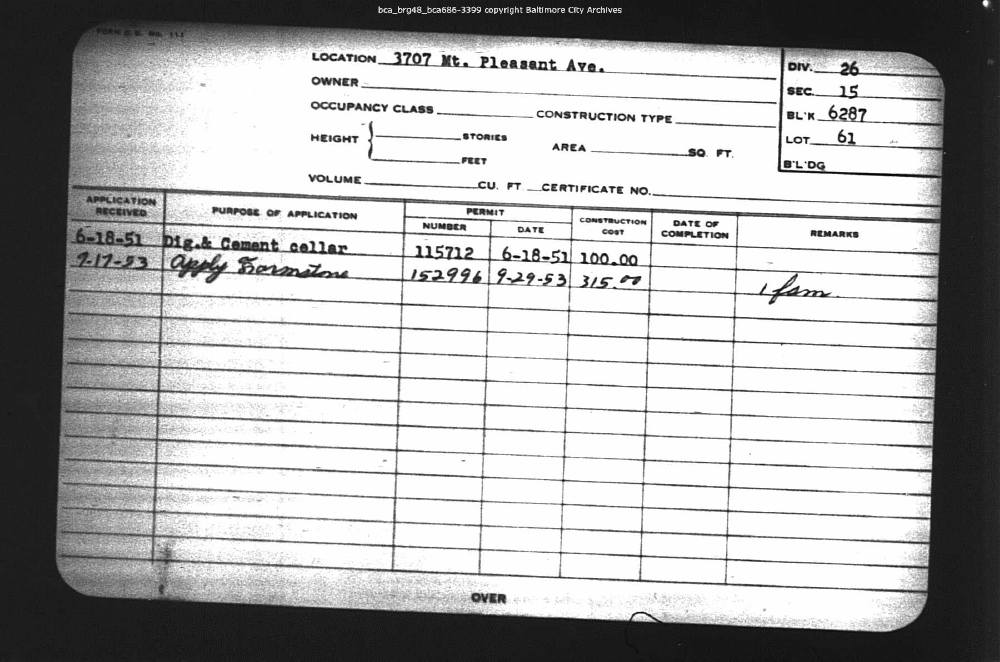 bca_brg48_bca686-3399 copyright Baltimore City Archives
LOCATION 3707 Mt. Pleasant Ave.
DIV. 26
OWNER
SEC. 15
OCCUPANCY CLASS CONSTRUCTION TYPE
BL'K 6287
HEIGHT { STORIES AREA SQ. FT.
LOT 61
FEET
B'L'DG
VOLUME CU. FT CERTIFICATE NO.
APPLICATION RECEIVED PURPOSE OF APPLICATION PERMIT NUMBER DATE CONSTRUCTION COST DATE OF COMPLETION REMARKS
6-18-51 Dig.& Cement cellar 115712 6-18-51 100.00
9-17-53 apply Formstone 152996 9-29-53 315.00 1 fam.
OVER